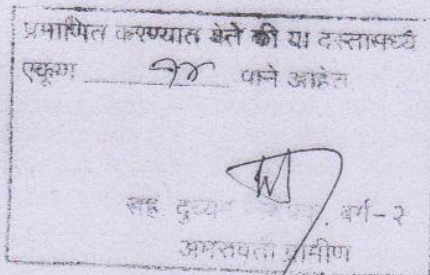 प्रमाणित करण्यात येते की या दस्तामध्ये
एकूण १४ पाने आहेत
सह दुय्यम वर्ग-२
अमरावती ग्रामीण